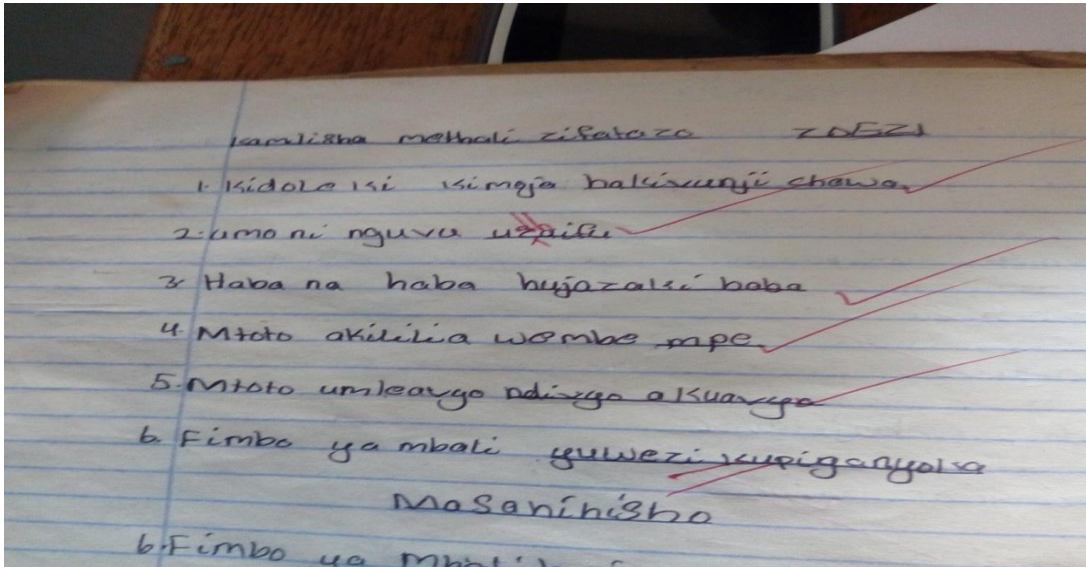 kamlisha methali zifatazo ZOEZI
1. Kidole ki kimoja hakivunji chawa
2. umo ni nguvu uzaifu
3. Haba na haba hujaza ki baba
4. Mtoto akililia wembe mpe
5. Mtoto umleavyo ndivyo akuavyo
6. Fimbo ya mbali yuwezi kupiga nyoka
Masahihisho
6. Fimbo ya